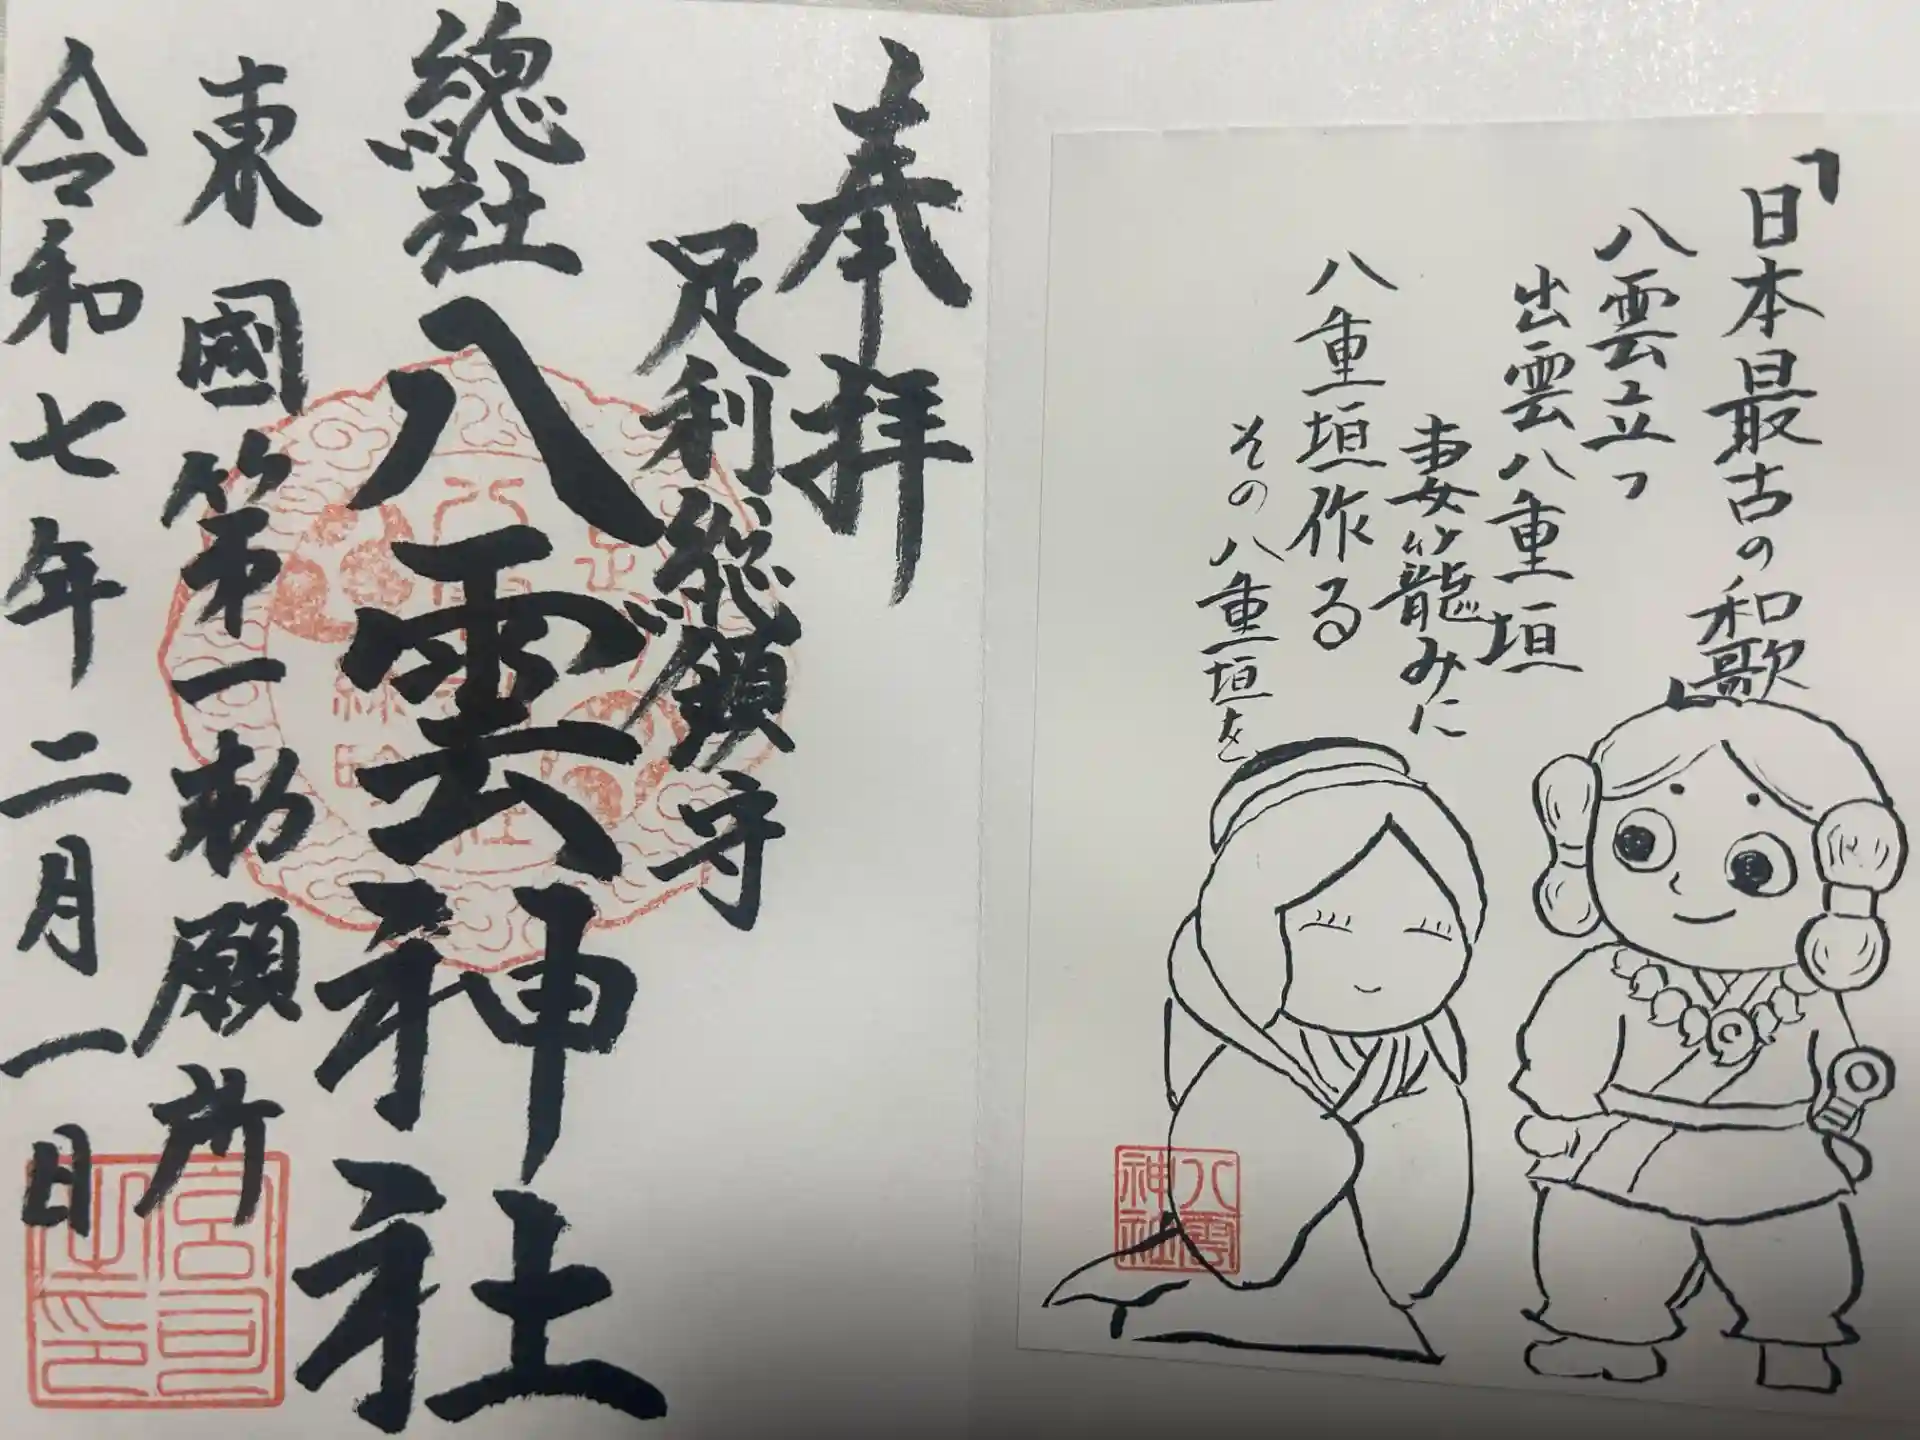 「日本最古の和歌」
八雲立つ
出雲八重垣
妻籠みに
八重垣作る
その八重垣を
八雲
神社
奉拝
足利総鎮守
總社
八雲神社
東國第一勅願所
令和七年二月一日
宮司
之印